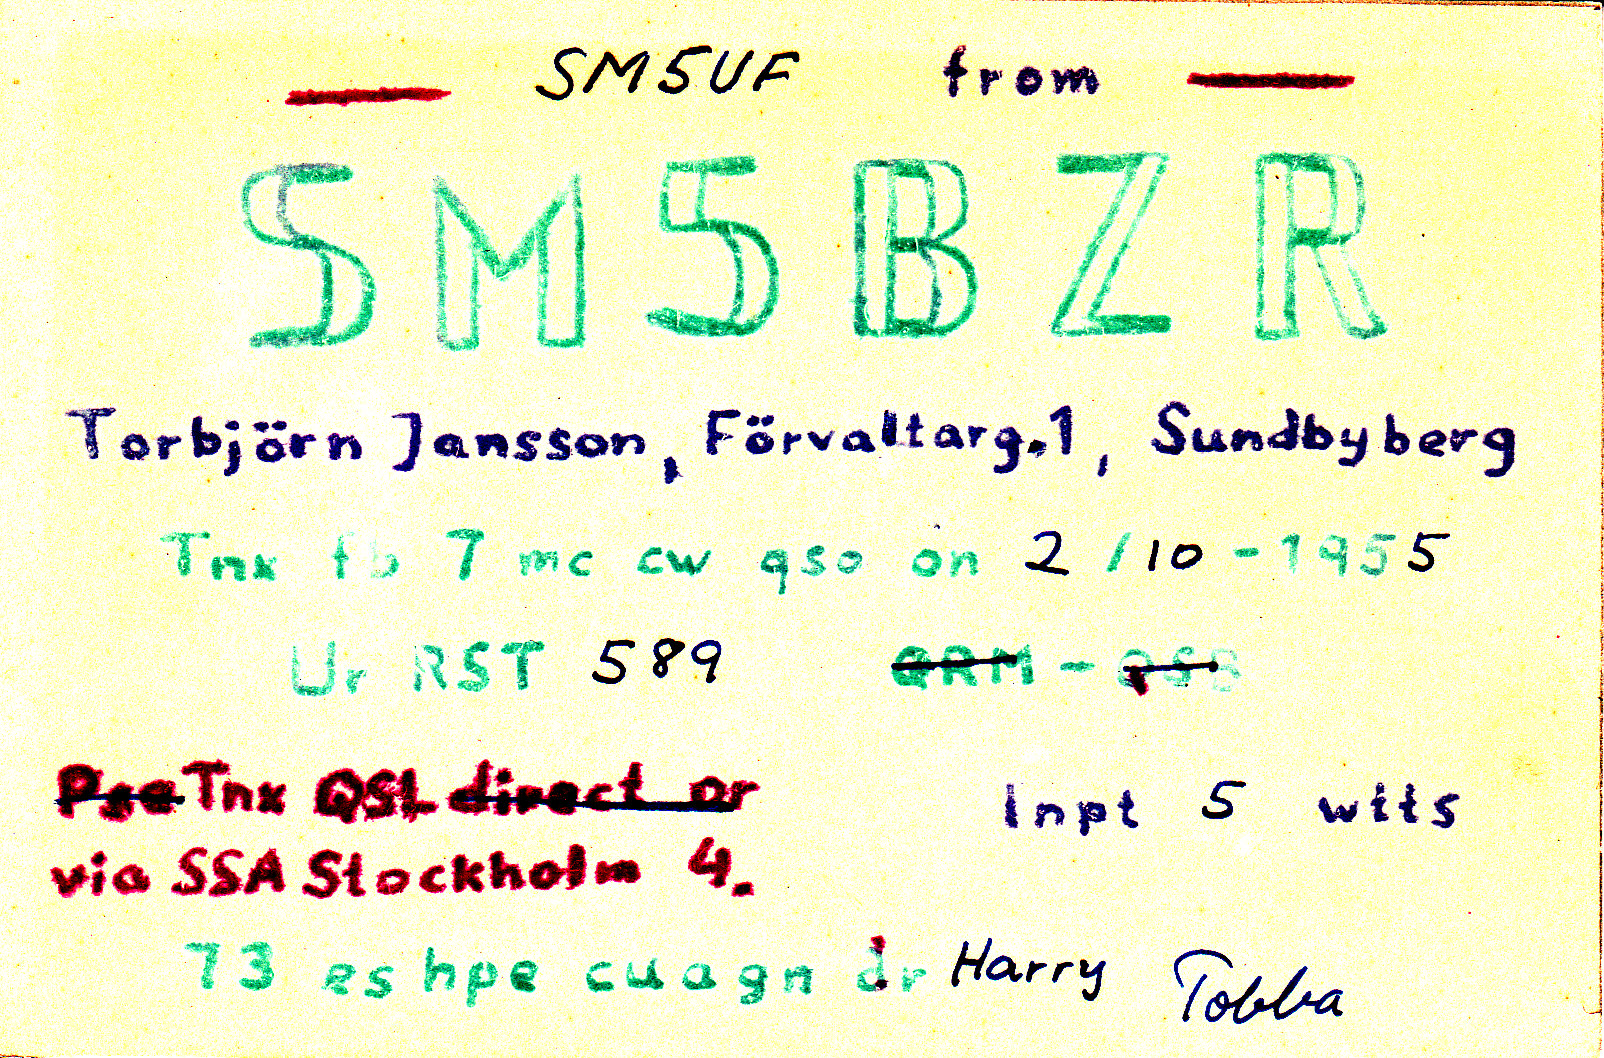 SM5UF from
SM5BZR
Torbjörn Jansson, Förvaltarg.1, Sundbyberg
Tnx fb 7 mc cw qso on 2/10-1955
Ur RST 589 QRM - QSB
Pse Tnx QSL direct or
via SSA Stockholm 4.
Inpt 5 wtts
73 es hpe cuagn dr Harry Tobba